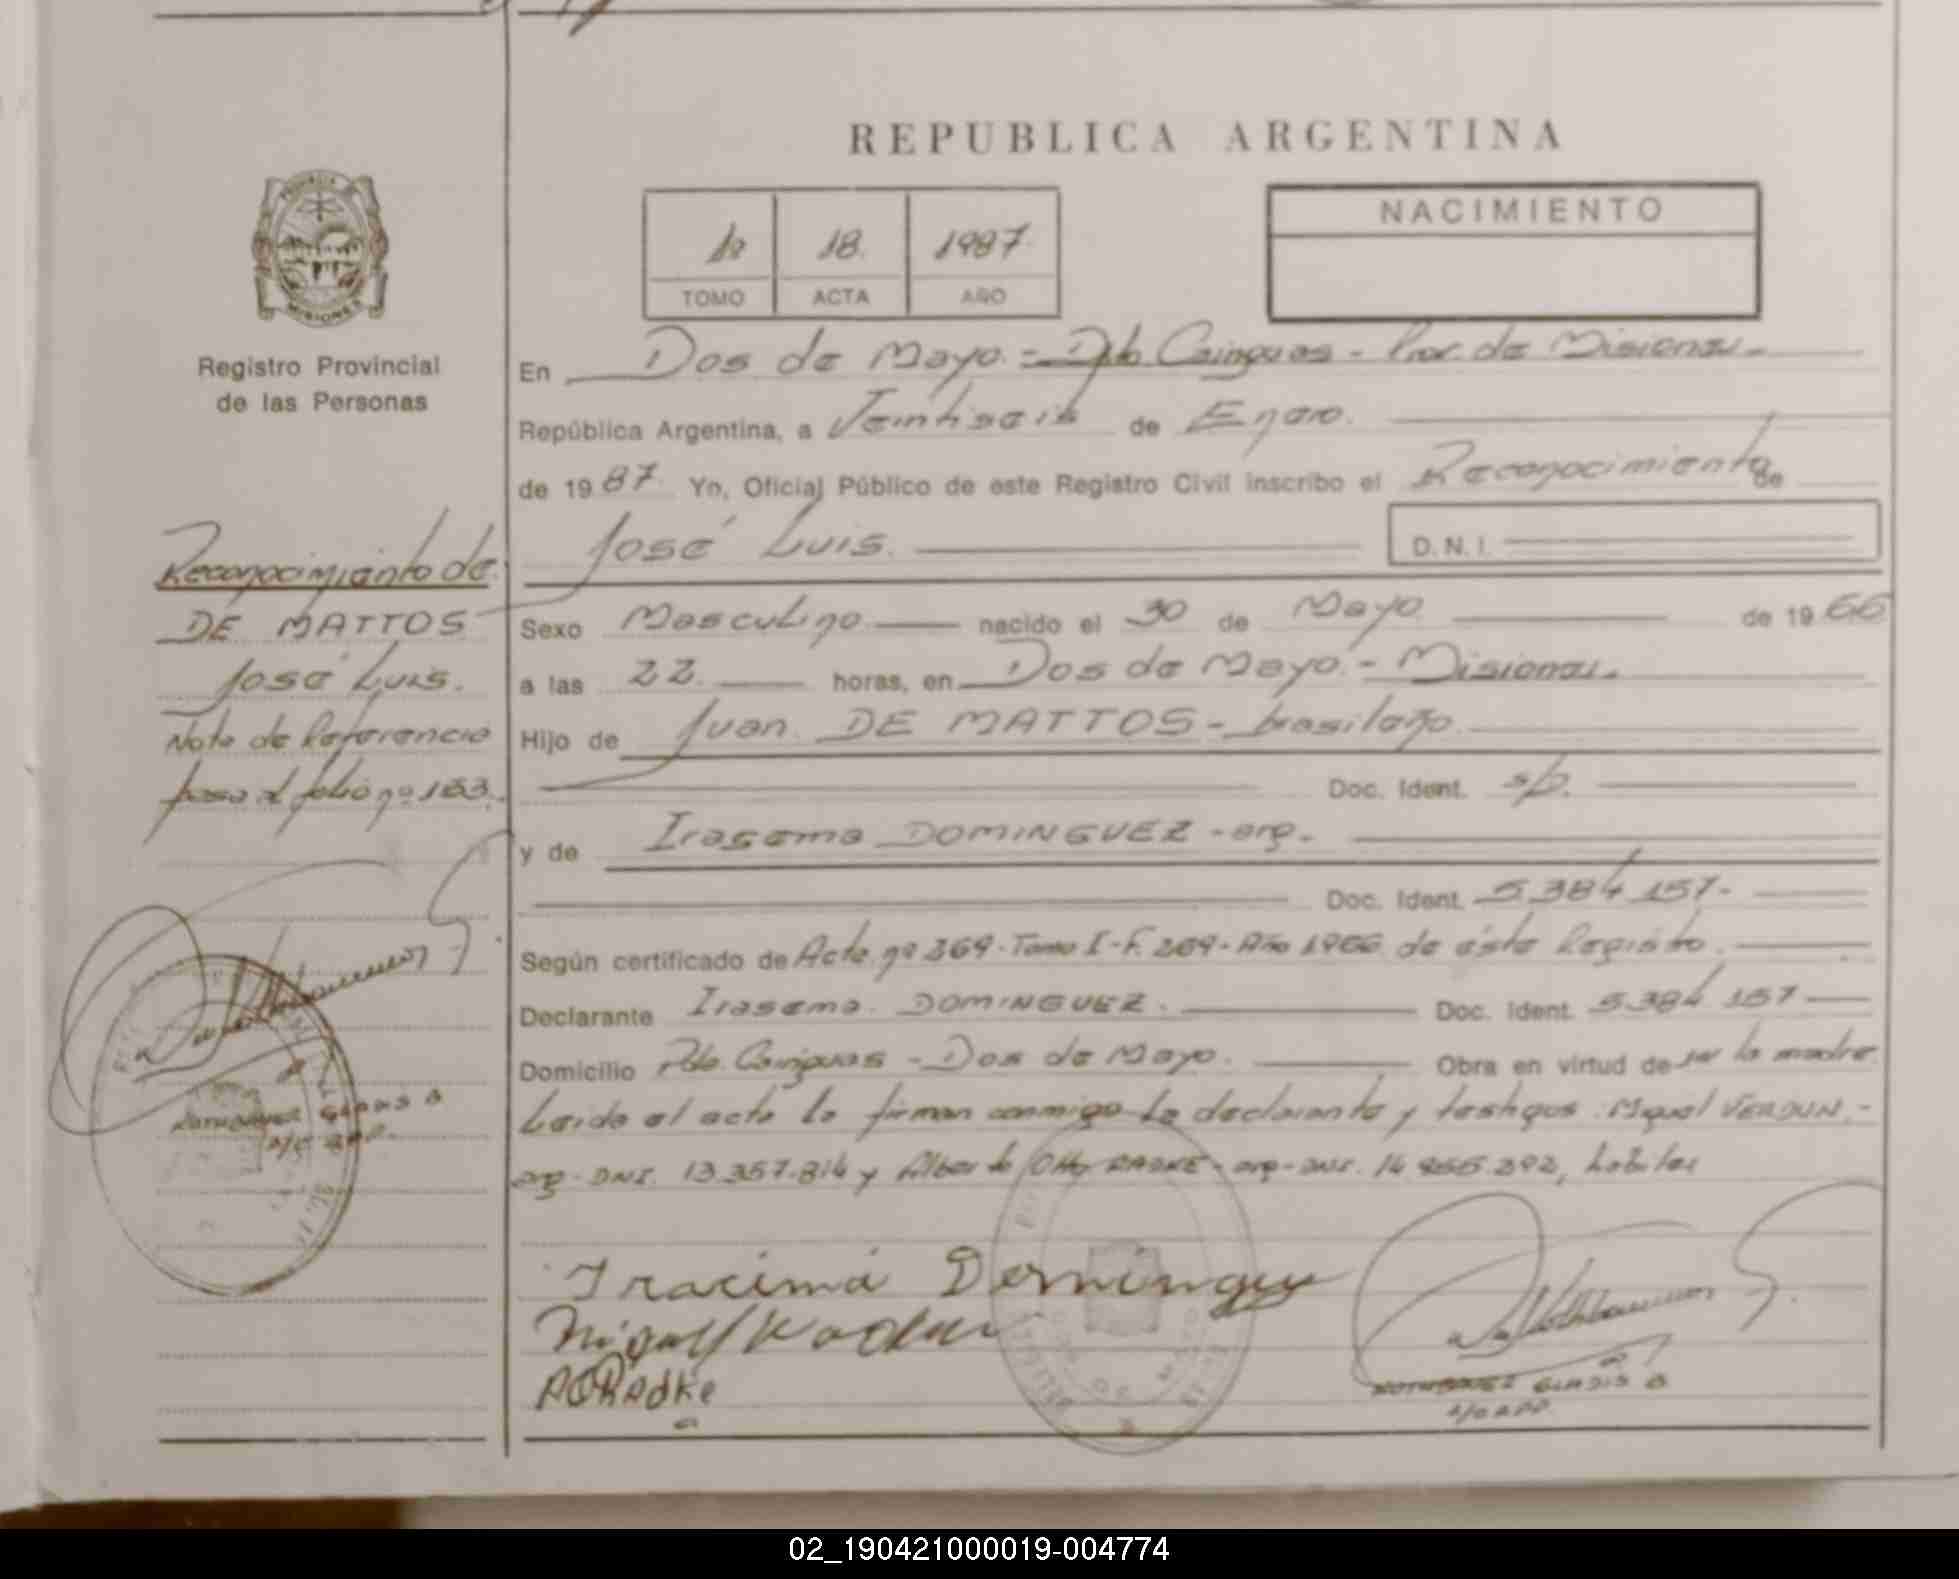 REPUBLICA ARGENTINA
PROVINCIA DE
MISIONES
Registro Provincial
de las Personas
1º 18. 1987
TOMO ACTA AÑO
NACIMIENTO
En Dos de Mayo. - Dpto Cainguas - Prov. de Misiones -
República Argentina, a Veintiseis de Enero.
de 19 87. Yo, Oficial Público de este Registro Civil inscribo el Reconocimiento de
José Luis. D.N.I.
Sexo Masculino nacido el 30 de Mayo de 19 66
a las 22. horas, en Dos de Mayo. - Misiones.
Hijo de Juan DE MATTOS - brasileño.
Doc. Ident. s/D.
y de Irasema DOMINGUEZ - arg.
Doc. Ident. 5.384.157-
Según certificado de Acta nº 369 - Tomo I - F. 269 - Año 1966 de éste Registro.
Declarante Irasema DOMINGUEZ. Doc. Ident. 5.384.157
Domicilio Pdo. Cainguas - Dos de Mayo. Obra en virtud de ser la madre
Leido el acta la firman conmigo la declarante y testigos Miguel VERDUN. -
arg - DNI. 13.357.814 y Alberto Otto RADKE - arg - DNI. 14.255.292, habiles
Reconocimiento de
DE MATTOS
José Luis.
Nota de Referencia
pasa al folio nº 183.
GLADIS B
Iracima Dominguez
Miguel
AORadke
GLADIS B